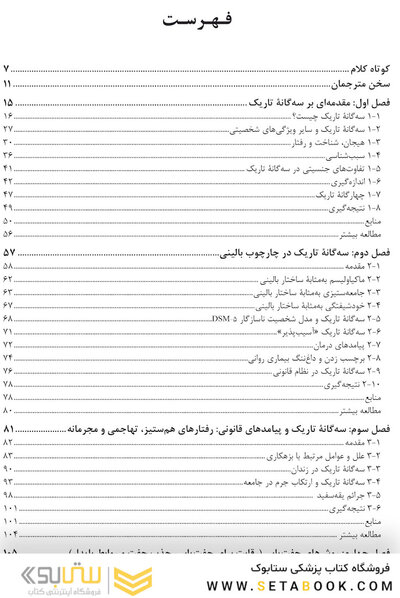 فهرست
کوتاه کلام ... ۷
سخن مترجمان ... ۱۱
فصل اول: مقدمه‌ای بر سه‌گانهٔ تاریک ... ۱۵
۱-۱ سه‌گانهٔ تاریک چیست؟ ... ۱۶
۱-۲ سه‌گانهٔ تاریک و سایر ویژگی‌های شخصیتی ... ۲۷
۱-۳ هیجان، شناخت و رفتار ... ۳۰
۱-۴ سبب‌شناسی ... ۳۶
۱-۵ تفاوت‌های جنسیتی در سه‌گانهٔ تاریک ... ۴۱
۱-۶ اندازه‌گیری ... ۴۲
۱-۷ چهارگانهٔ تاریک ... ۴۷
۱-۸ نتیجه‌گیری ... ۴۹
منابع ... ۵۰
مطالعه بیشتر ... ۵۶
فصل دوم: سه‌گانهٔ تاریک در چارچوب بالینی ... ۵۷
۲-۱ مقدمه ... ۵۸
۲-۲ ماکیاولیسم به‌مثابهٔ ساختار بالینی ... ۶۲
۲-۳ جامعه‌ستیزی به‌مثابهٔ ساختار بالینی ... ۶۳
۲-۴ خودشیفتگی به‌مثابهٔ ساختار بالینی ... ۶۷
۲-۵ سه‌گانهٔ تاریک و مدل شخصیت ناسازگار DSM-5 ... ۶۸
۲-۶ سه‌گانهٔ تاریک «آسیب‌پذیر» ... ۷۱
۲-۷ پیامدهای درمان ... ۷۲
۲-۸ برچسب زدن و داغ‌ننگ بیماری روانی ... ۷۴
۲-۹ سه‌گانهٔ تاریک در نظام قانونی ... ۷۶
۲-۱۰ نتیجه‌گیری ... ۷۸
منابع ... ۷۸
مطالعه بیشتر ... ۸۰
فصل سوم: سه‌گانهٔ تاریک و پیامدهای قانونی: رفتارهای هم‌ستیز، تهاجمی و مجرمانه ... ۸۱
۳-۱ مقدمه ... ۸۲
۳-۲ علل و عوامل مرتبط با بزهکاری ... ۸۳
۳-۳ سه‌گانهٔ تاریک در زندان ... ۹۰
۳-۴ سه‌گانهٔ تاریک و ارتکاب جرم در جامعه ... ۹۳
۳-۵ جرائم یقه‌سفید ... ۹۸
۳-۶ نتیجه‌گیری ... ۱۰۱
منابع ... ۱۰۱
مطالعه بیشتر ... ۱۰۴
فروشگاه کتاب پزشکی ستابوک
WWW.SETABOOK.COM
ستابوک
فروشگاه اینترنتی کتاب